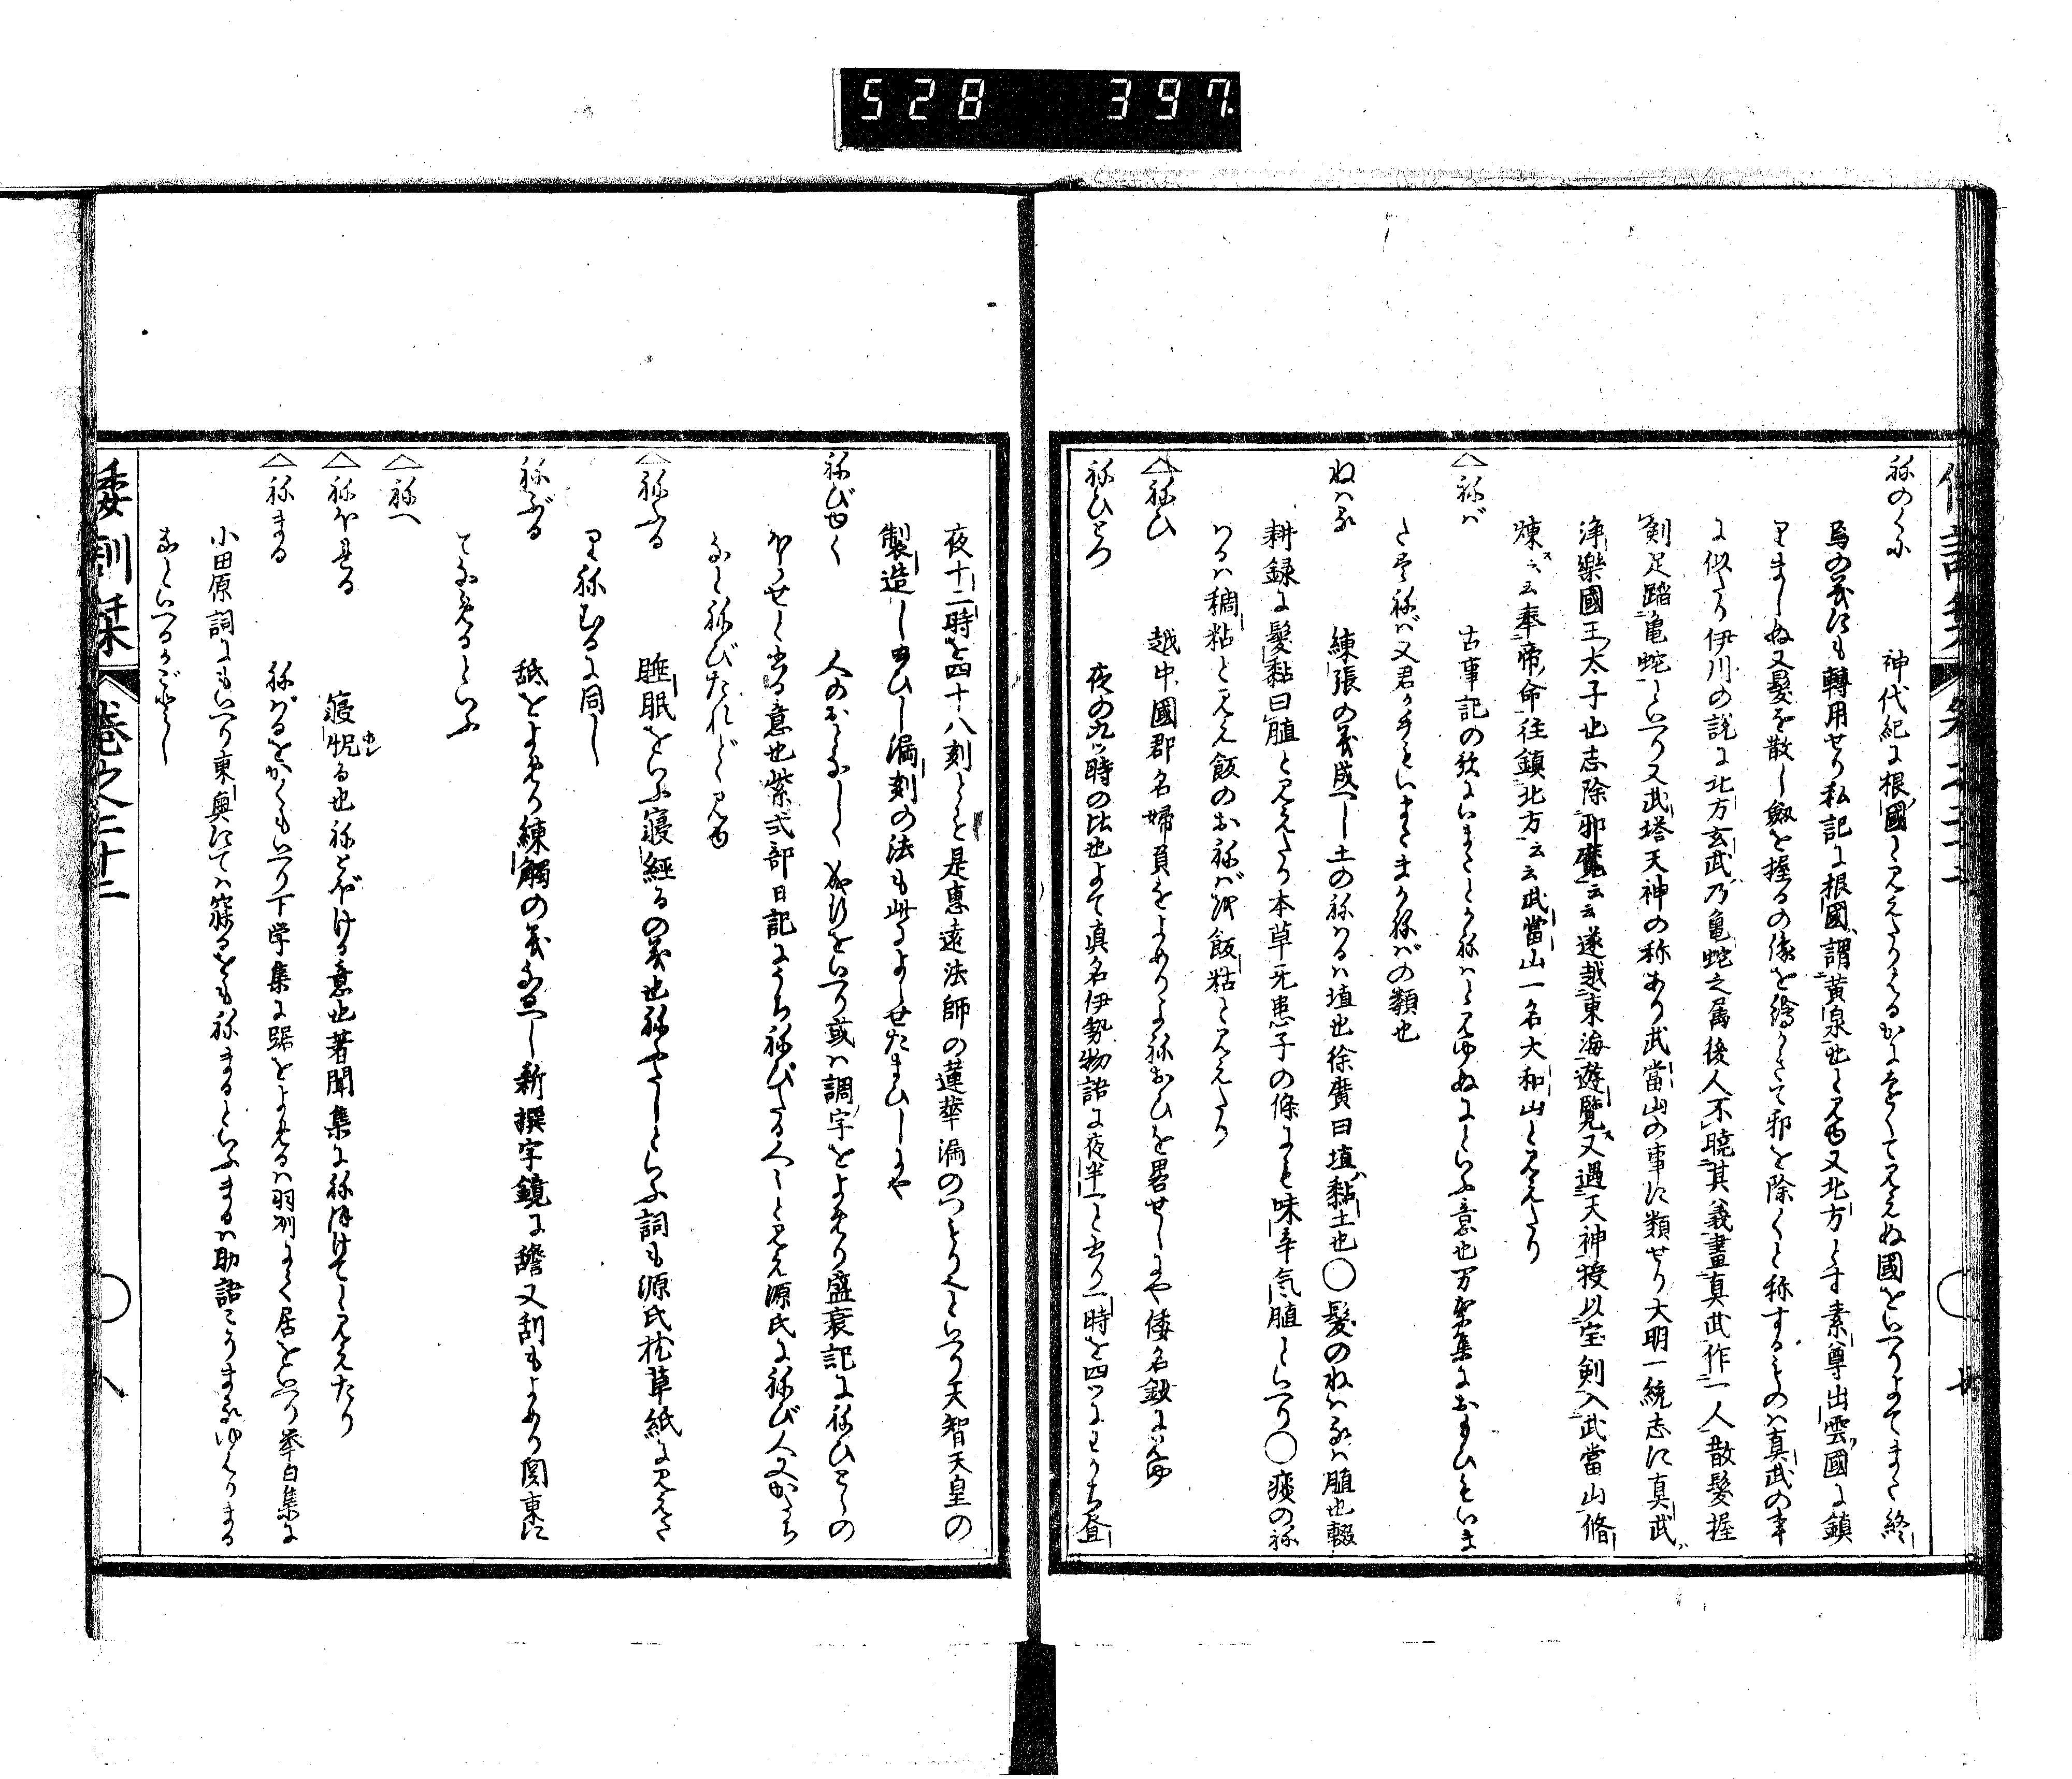 528 397
ねのくに 神代紀に根國と見えたりはるかに遠くて見えぬ國をいへりよてまた終
焉の義にも轉用せり私記に根國謂黄泉也と見ゆ又北方とす素尊出雲國に鎮
りましぬ又髮を散し劔を握るの像を繪かきて邪を除くと称するものハ真武の事
に似たり伊川の説に北方玄武乃亀蛇之属後人不曉其義畫真武作一人散髮握
剣足蹈亀蛇といへり又武塔天神の称あり武當山の事に類せり大明一統志に真武
浄樂國王太子也志除邪魔云云遂越東海遊覽又遇天神授以宝剣入武當山脩
煉云云奉帝命往鎮北方云云武當山一名大和山と見えたり
△ねば 古事記の歌にいまたとかねハと見ゆぬにといふ意也万葉集におもひもいま
たつきねバ又君か手もいまたまかねバの類也
ねハる 練張の義成へし土のねハるハ埴也徐廣曰埴黏土也○髮のねハるハ䐈也輟
耕録に髮黏曰䐈と見えたり本草旡患子の條にも味辛気䐈といへり○痰のね
ハるハ稠粘と見え飯のおねバハ飯粘と見えたり
△ねひ 越中國郡名婦負をよめりよねおひを畧せしにや倭名鈔に見ゆ
ねひとつ 夜の九ツ時の比也よて真名伊勢物語に夜半一と書り一時を四つにわかち昼
夜十二時を四十八刻とも是惠遠法師の蓮華漏のつもりへといへり天智天皇の
製造し玉ひし漏刻の法も此によらせたまひしにや
ねびゆく 人のおとなしく成行をいへり或ハ調字をよめり盛衰記にねひとゝの
ほらせと書る意也紫式部日記にうちねびたる人々と見え源氏にねび人又かたち
なとねびたれどと見ゆ
△ねふる 睡眠をいふ寝經るの義也ねやたしといふ詞も源氏枕草紙に見えた
りねむるに同し
ねぶる 舐をよめり練觸の義なるへし新撰字鏡に䑛又刮もよめり関東に
てなめるといふ
△ねへ
△ねほれる 寝怳る也ねとぼける意也著聞集にねほけてと見えたり
△ねまる ねバるをかくもいへり下学集に踞をよめるハ羽州にて居をいへり挙白集に
小田原詞にもいへり東奥にてハ寐るをもねまるといふまるハ助語こうまるゆはりまる
なといへるがごとし
倭訓栞 巻之二十二 ○ 八